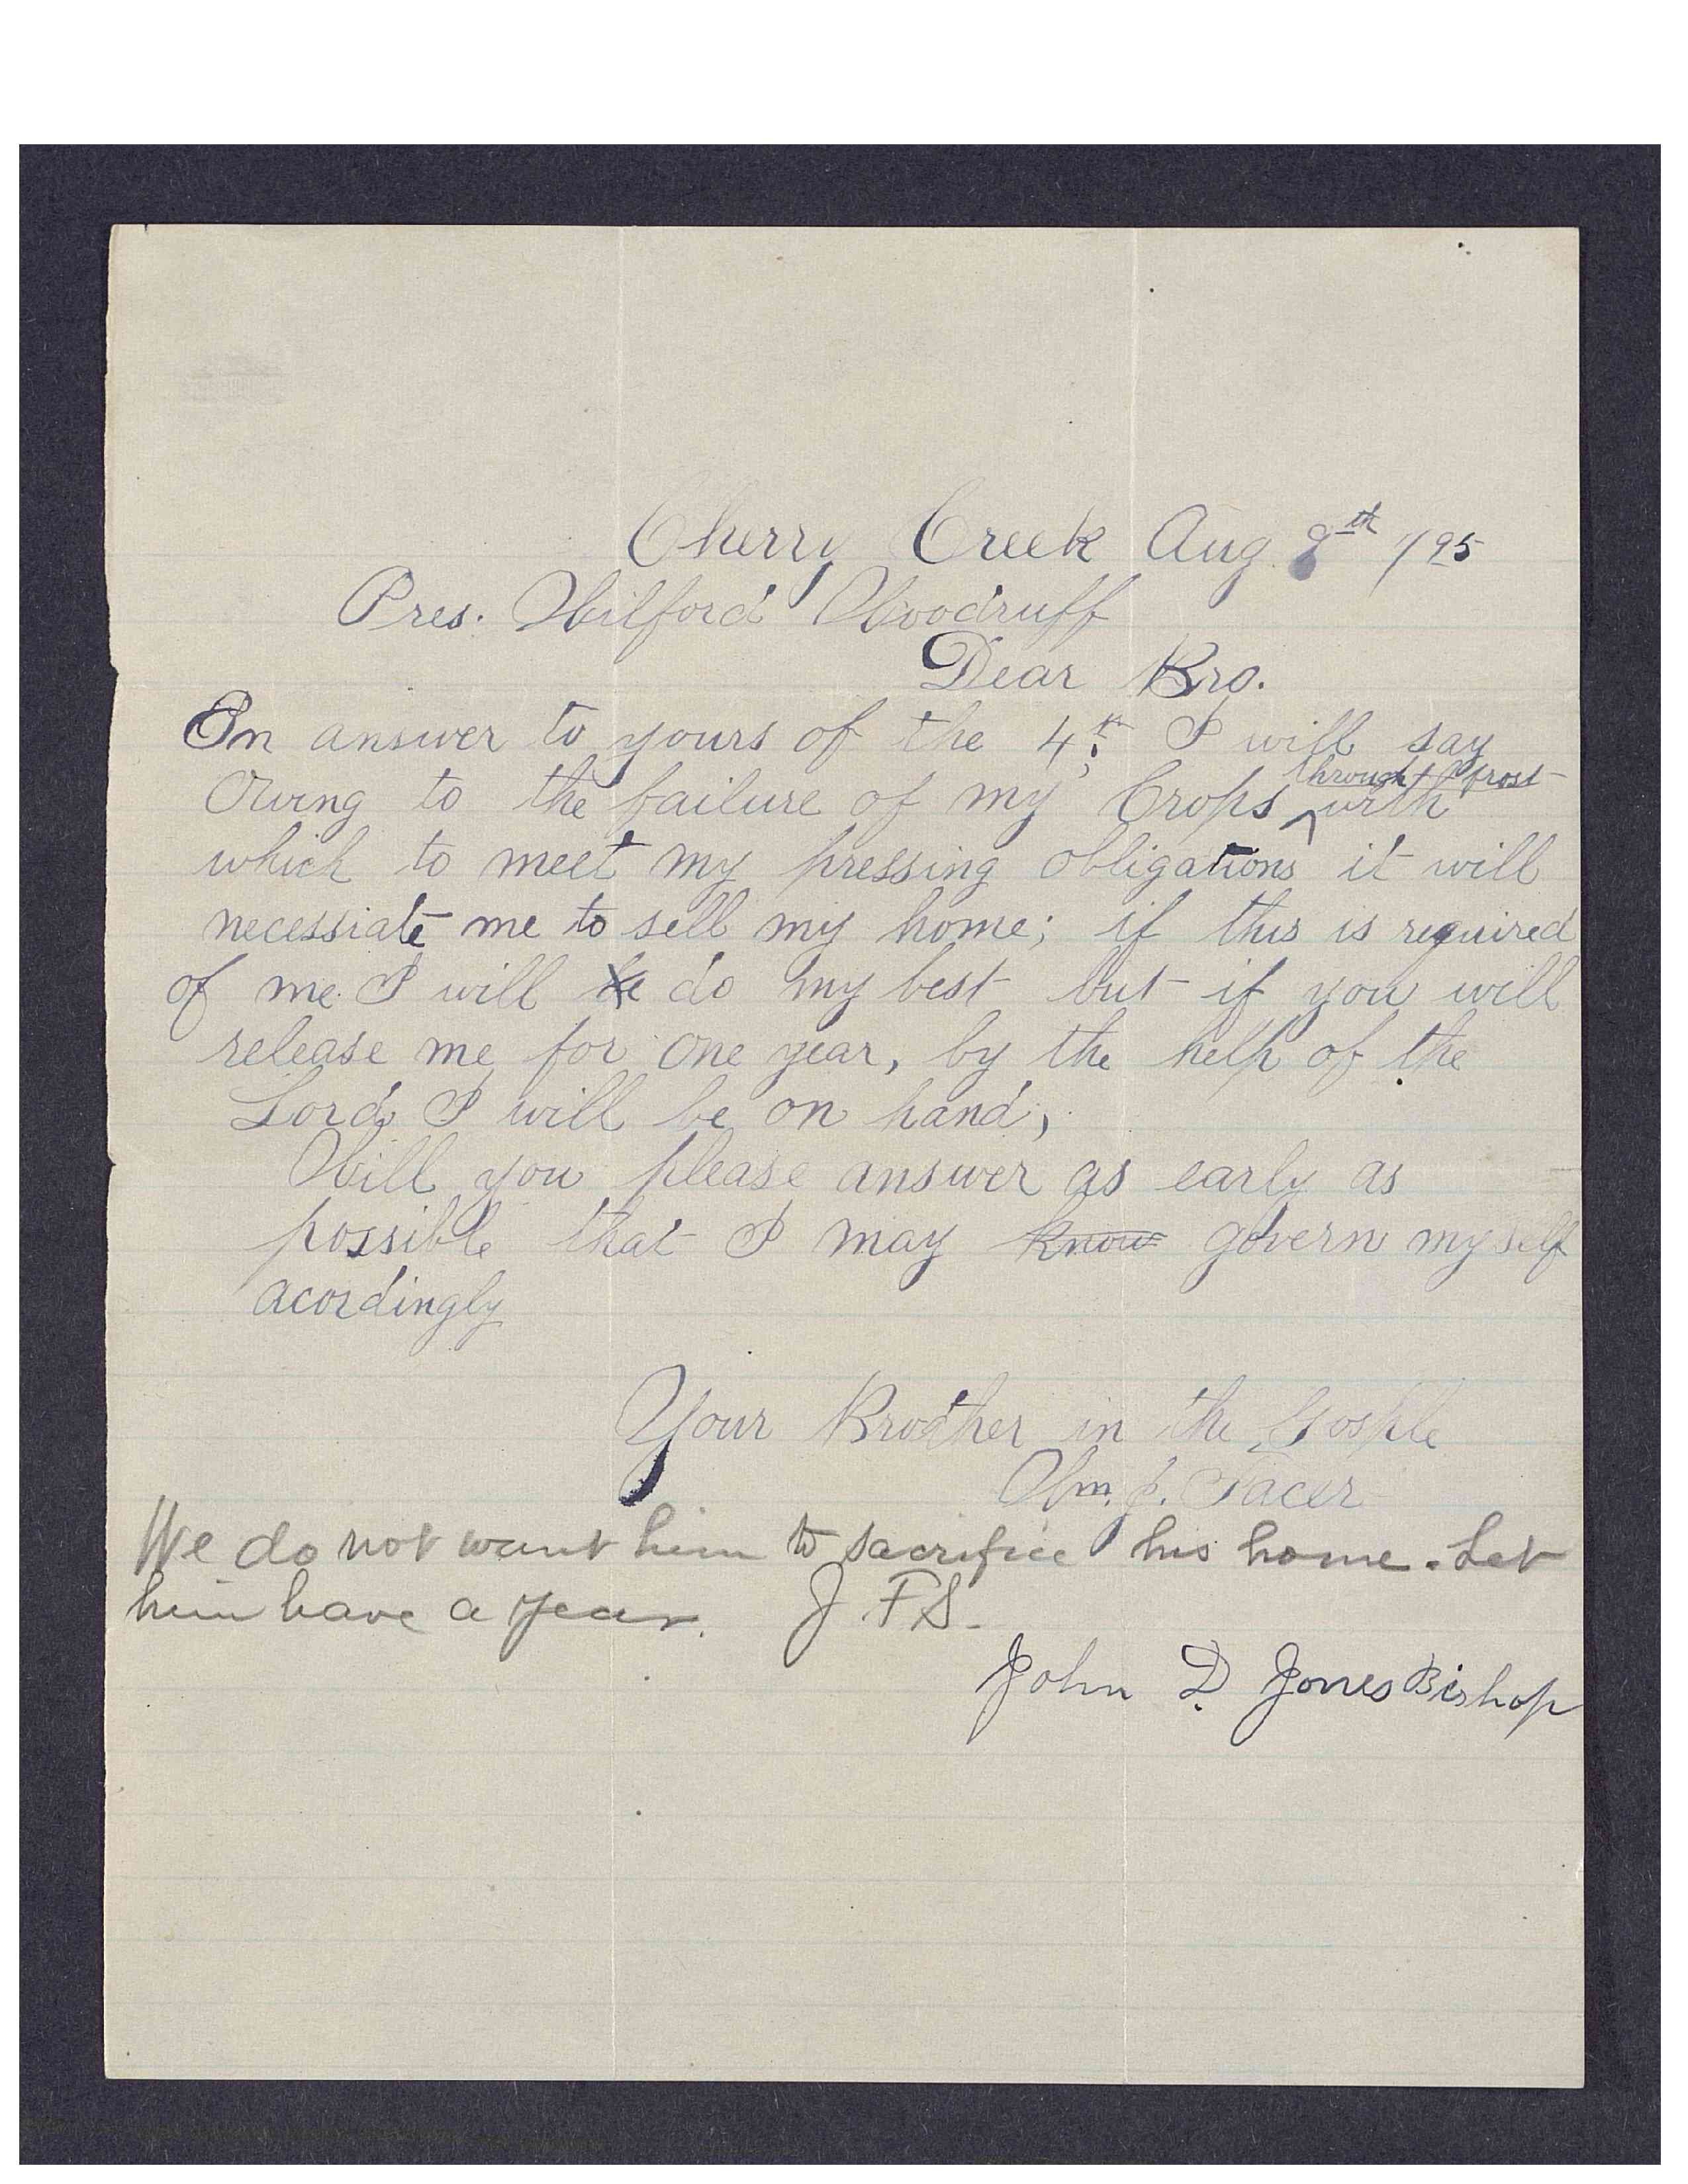 Cherry Creek Aug 8th /95
Pres. Wilford Woodruff
Dear Bro.
In answer to yours of the 4th. I will say
through frost
Owing to the failure of my Crops ^ with
which to meet my pressing obligations it will
necessiate me to sell my home; if this is required
of me I will be do my best but if you will
release me for one year, by the help of the
Lord I will be on hand,
Will you please answer as early as
possible that I may know govern myself
acordingly
Your Brother in the Gosple
Wm. J.
We do not want him to sacrifice his home. Let
him have a year. J F S.
John D. Jones Bishop